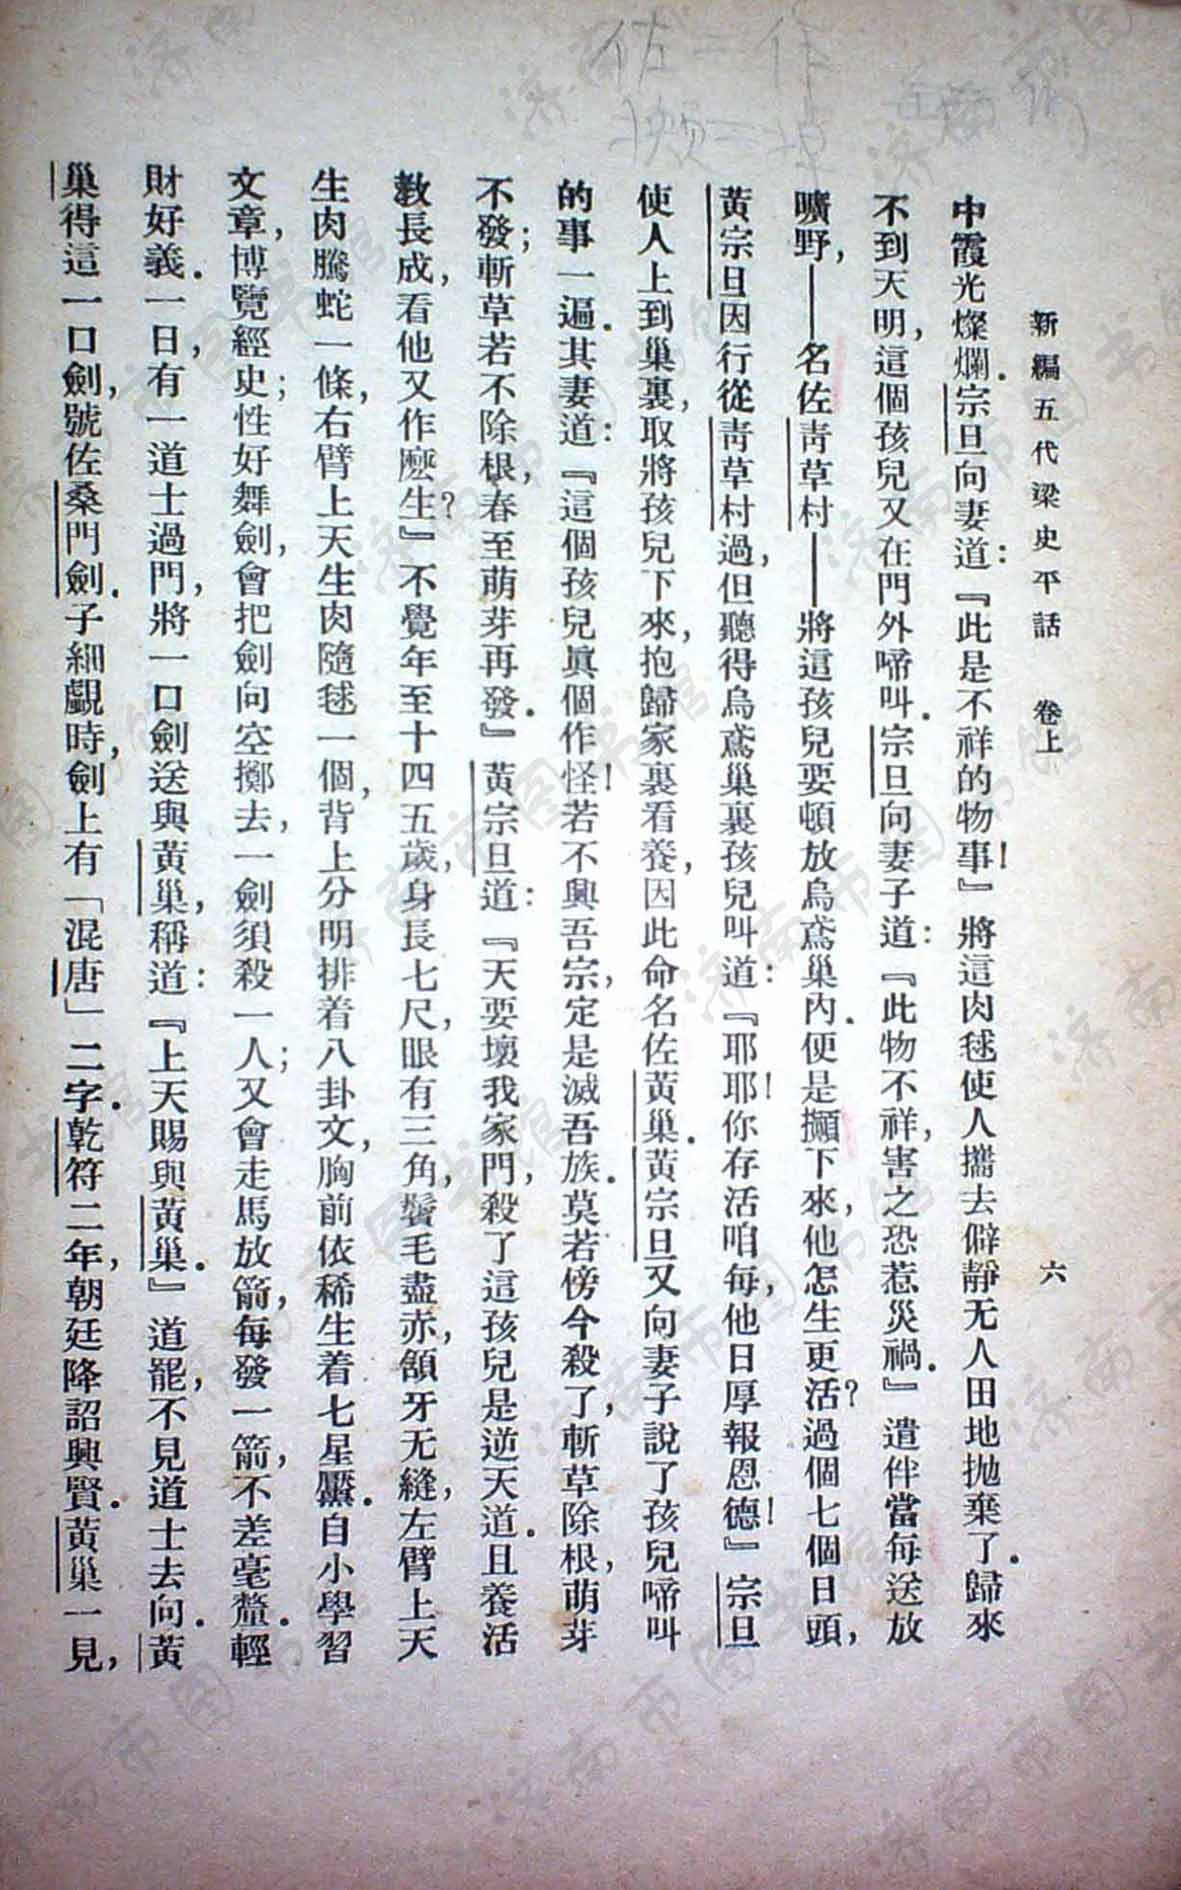 佐=作
攧=掉
新編五代梁史平話　卷上　六
中霞光燦爛．宗旦向妻道：『此是不祥的物事！』將這肉毬使人攜去僻靜无人田地抛棄了．歸來
不到天明，這個孩兒又在門外啼叫．宗旦向妻子道：『此物不祥，害之恐惹災禍．』遣伴當每送放
曠野，——名佐青草村——將這孩兒要頓放烏鳶巢內．便是攧下來，他怎生更活？過個七個日頭，
黃宗旦因行從青草村過，但聽得烏鳶巢裏孩兒叫道：『耶耶！你存活咱每，他日厚報恩德！』宗旦
使人上到巢裏，取將孩兒下來，抱歸家裏看養，因此命名佐黃巢．黃宗旦又向妻子說了孩兒啼叫
的事一遍．其妻道：『這個孩兒眞個作怪！若不興吾宗，定是滅吾族．莫若傍今殺了，斬草除根，萌芽
不發；斬草若不除根，春至萌芽再發．』黃宗旦道：『天要壞我家門，殺了這孩兒是逆天道．且養活
敎長成，看他又作麽生？』不覺年至十四五歲，身長七尺，眼有三角，鬢毛盡赤，頷牙无縫，左臂上天
生肉騰蛇一條，右臂上天生肉隨毬一個，背上分明排着八卦文，胸前依稀生着七星黶．自小學習
文章，博覽經史；性好舞劍，會把劍向空擲去，一劍須殺一人；又會走馬放箭，每發一箭，不差毫釐．輕
財好義．一日，有一道士過門，將一口劍送與黃巢，稱道：『上天賜與黃巢．』道罷，不見道士去向．黃
巢得這一口劍，號佐桑門劍．子細覷時，劍上有「混唐」二字．乾符二年，朝廷降詔興賢．黃巢一見，
济南市图书馆